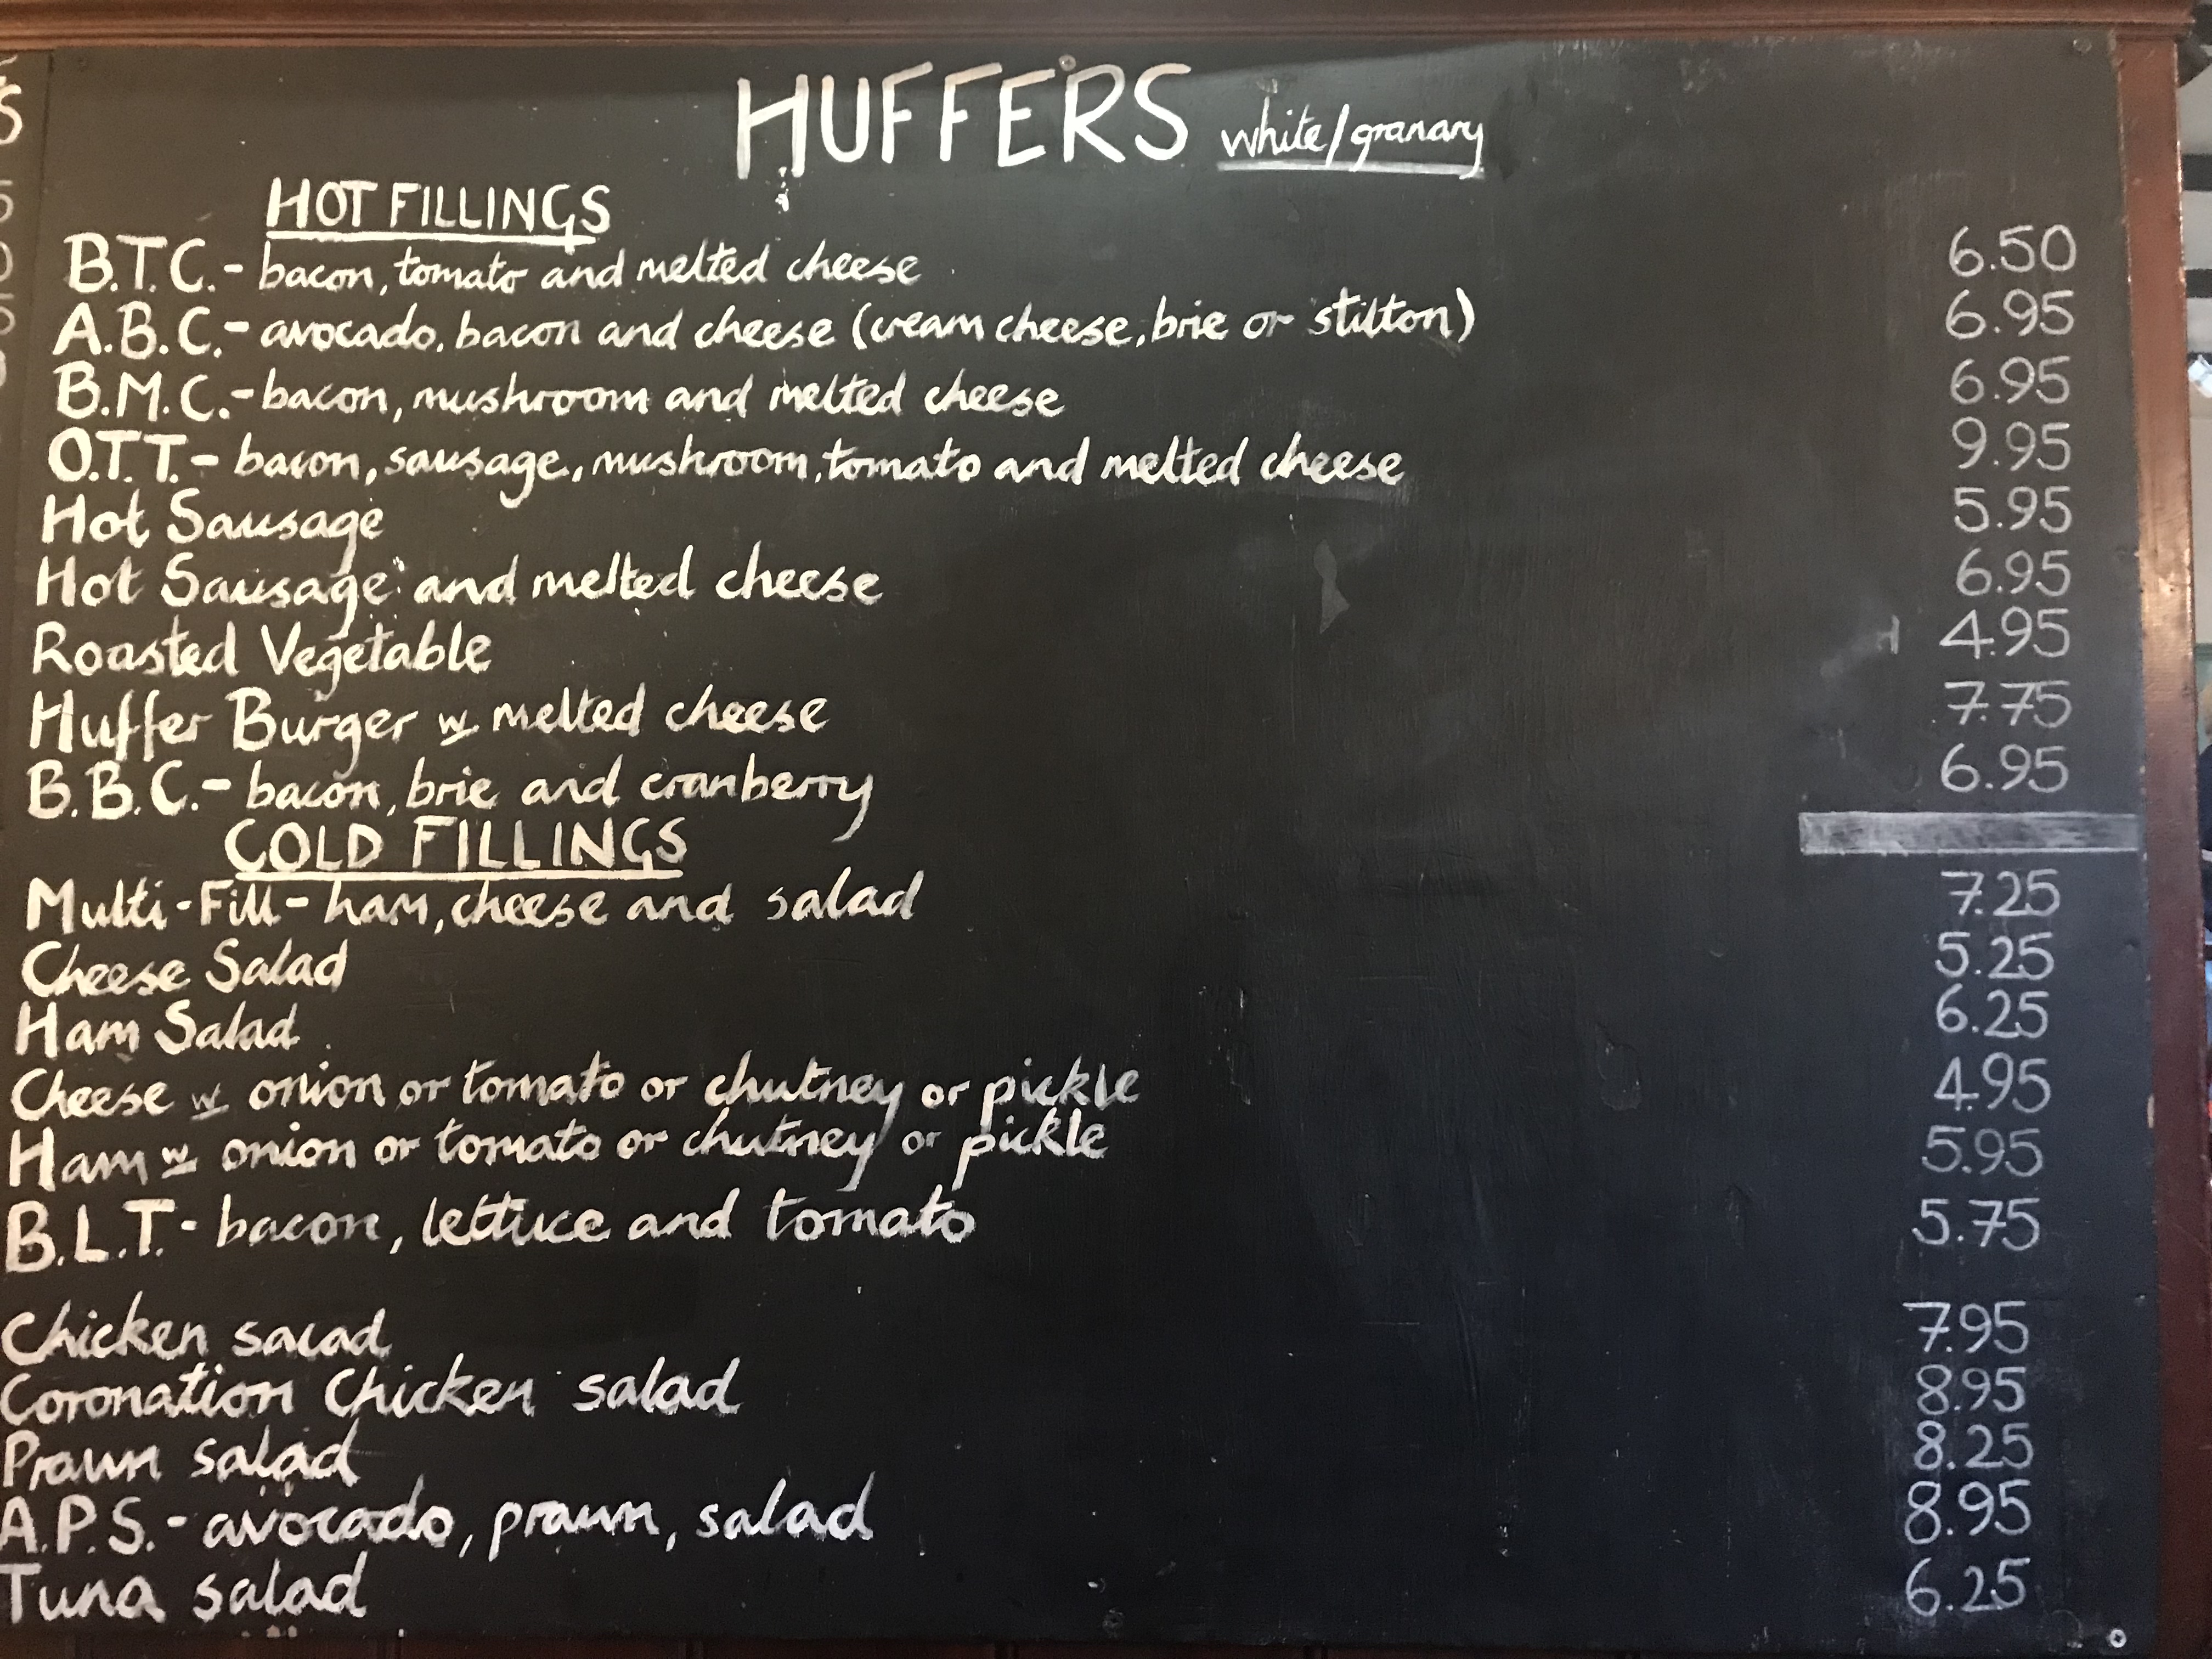 HUFFERS white/granary
HOT FILLINGS
B.T.C. - bacon, tomato and melted cheese 6.50
A.B.C. - avocado, bacon and cheese (cream cheese, brie or stilton) 6.95
B.M.C. - bacon, mushroom and melted cheese 6.95
O.T.T. - bacon, sausage, mushroom, tomato and melted cheese 9.95
Hot Sausage 5.95
Hot Sausage and melted cheese 6.95
Roasted Vegetable 4.95
Huffer Burger w melted cheese 7.75
B.B.C. - bacon, brie and cranberry 6.95
COLD FILLINGS
Multi-Fill - ham, cheese and salad 7.25
Cheese Salad 5.25
Ham Salad 6.25
Cheese w onion or tomato or chutney or pickle 4.95
Ham w onion or tomato or chutney or pickle 5.95
B.L.T. - bacon, lettuce and tomato 5.75
Chicken salad 7.95
Coronation Chicken salad 8.95
Prawn salad 8.25
A.P.S. - avocado, prawn, salad 8.95
Tuna salad 6.25